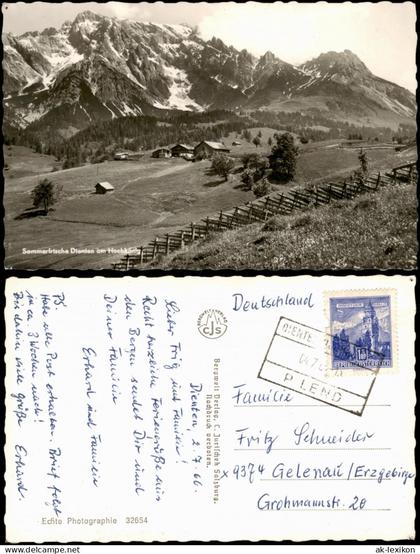 Sommerfrische Dienten am Hochkönig
CJS
Bergwelt Verlag, C. Jurischek Salzburg.
Nachdruck verboten.
Echte Photographie 32654
Dienten, 2.7.66.
Lieber Fritz und Familie!
Recht herzliche Feriengrüße aus
den Bergen sendet Dir und
Deiner Familie
Erhard und Familie
PS
Habe alle Post erhalten. Brief folgt
in ca 3 Wochen nach!
Bis dahin viele Grüße Erhard.
Deutschland
REPUBLIK ÖSTERREICH
P. LEND
Familie
Fritz Schneider
x 9374 Gelenau/Erzgebirge
Grohmannstr. 20
© ak-lexikon
www.ak-lexikon.de